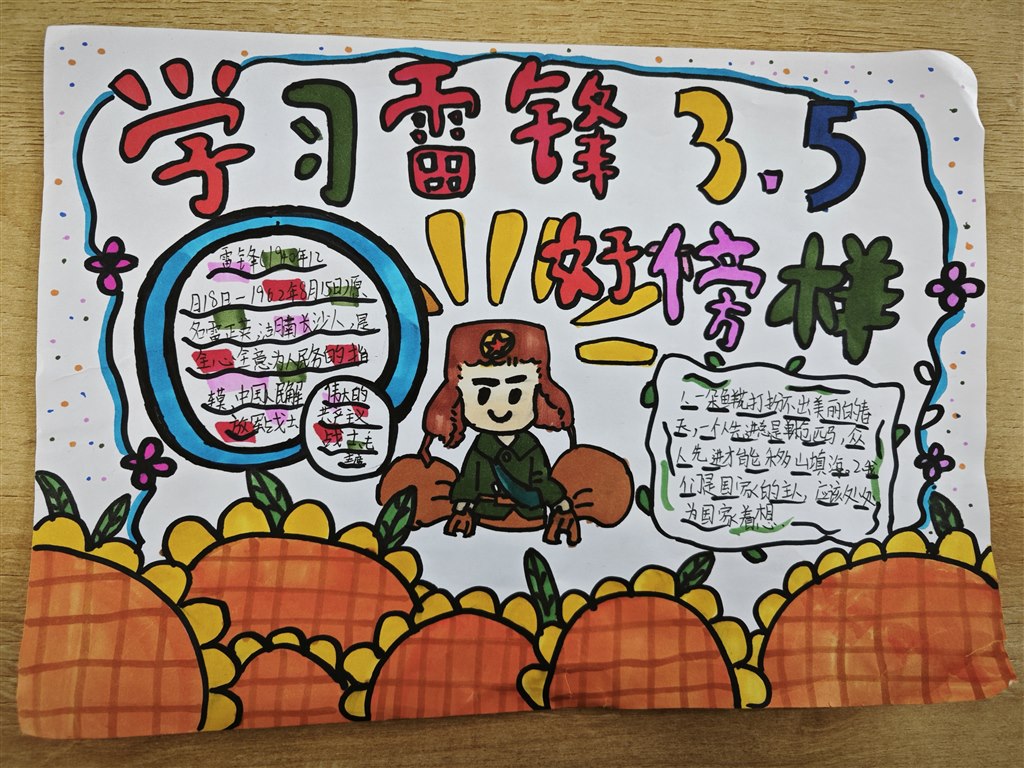 学习雷锋 3.5
好榜样
雷锋(1940年12
月18日-1962年8月15日)原
名雷正兴,湖南长沙人,是
全心全意为人民务的楷
模,中国人民解
放军战士
伟大的
共产主义
战士
1.一朵鲜打扮不出美丽的春
天,一个人先进总是单匹马,众
人先进才能移山填海 2.我
们是国家的主人 应该处处
为国家着想